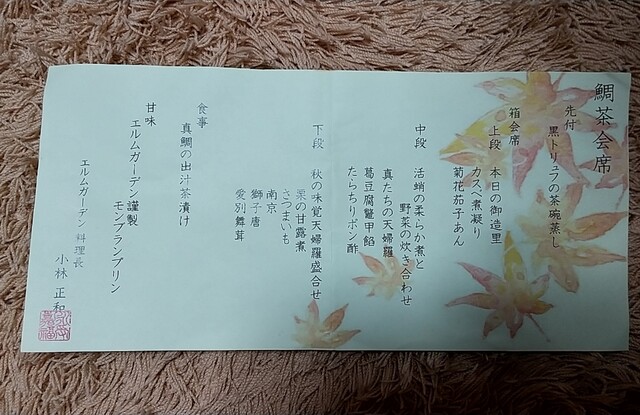 鯛茶会席
先付
黒トリュフの茶碗蒸し
箱会席
上段 本日の御造里
カスベ煮凝り
菊花茄子あん
中段 活蛸の柔らか煮と
野菜の炊き合わせ
真たちの天婦羅
葛豆腐鼈甲餡
たらちりポン酢
下段 秋の味覚天婦羅盛合せ
栗の甘露煮
さつまいも
南京
獅子唐
愛別舞茸
食事
真鯛の出汁茶漬け
甘味
エルムガーデン謹製
モンブランプリン
エルムガーデン 料理長
小林 正和